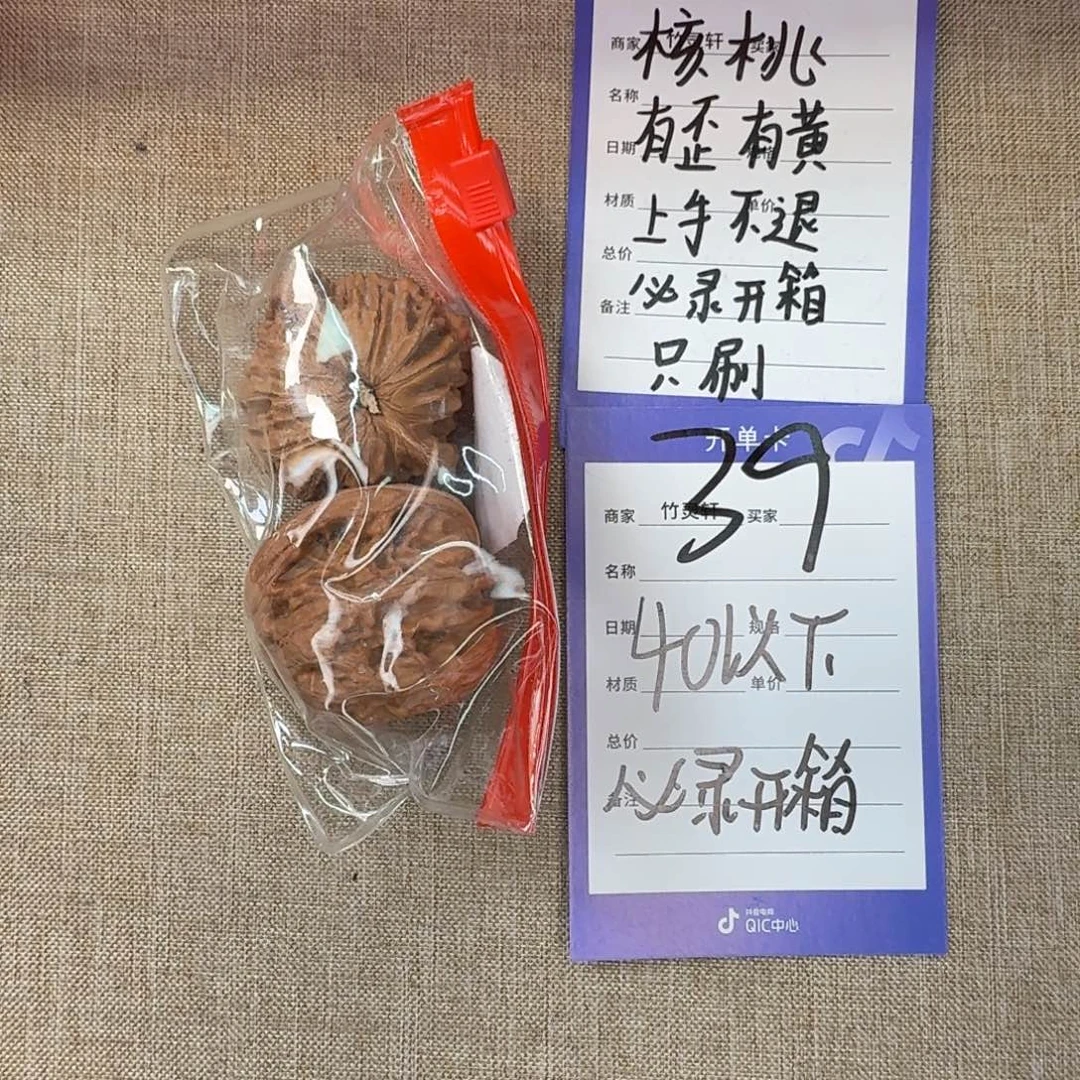 商家 竹灵轩 买家
核桃
名称
有歪 有黄
日期
上手不退
材质 单价
总价
必录开箱
备注
只刷
开单卡
39
商家 竹灵轩 买家
名称
40以下
日期 规格
材质 单价
总价
必录开箱
备注
抖音电商
QIC中心